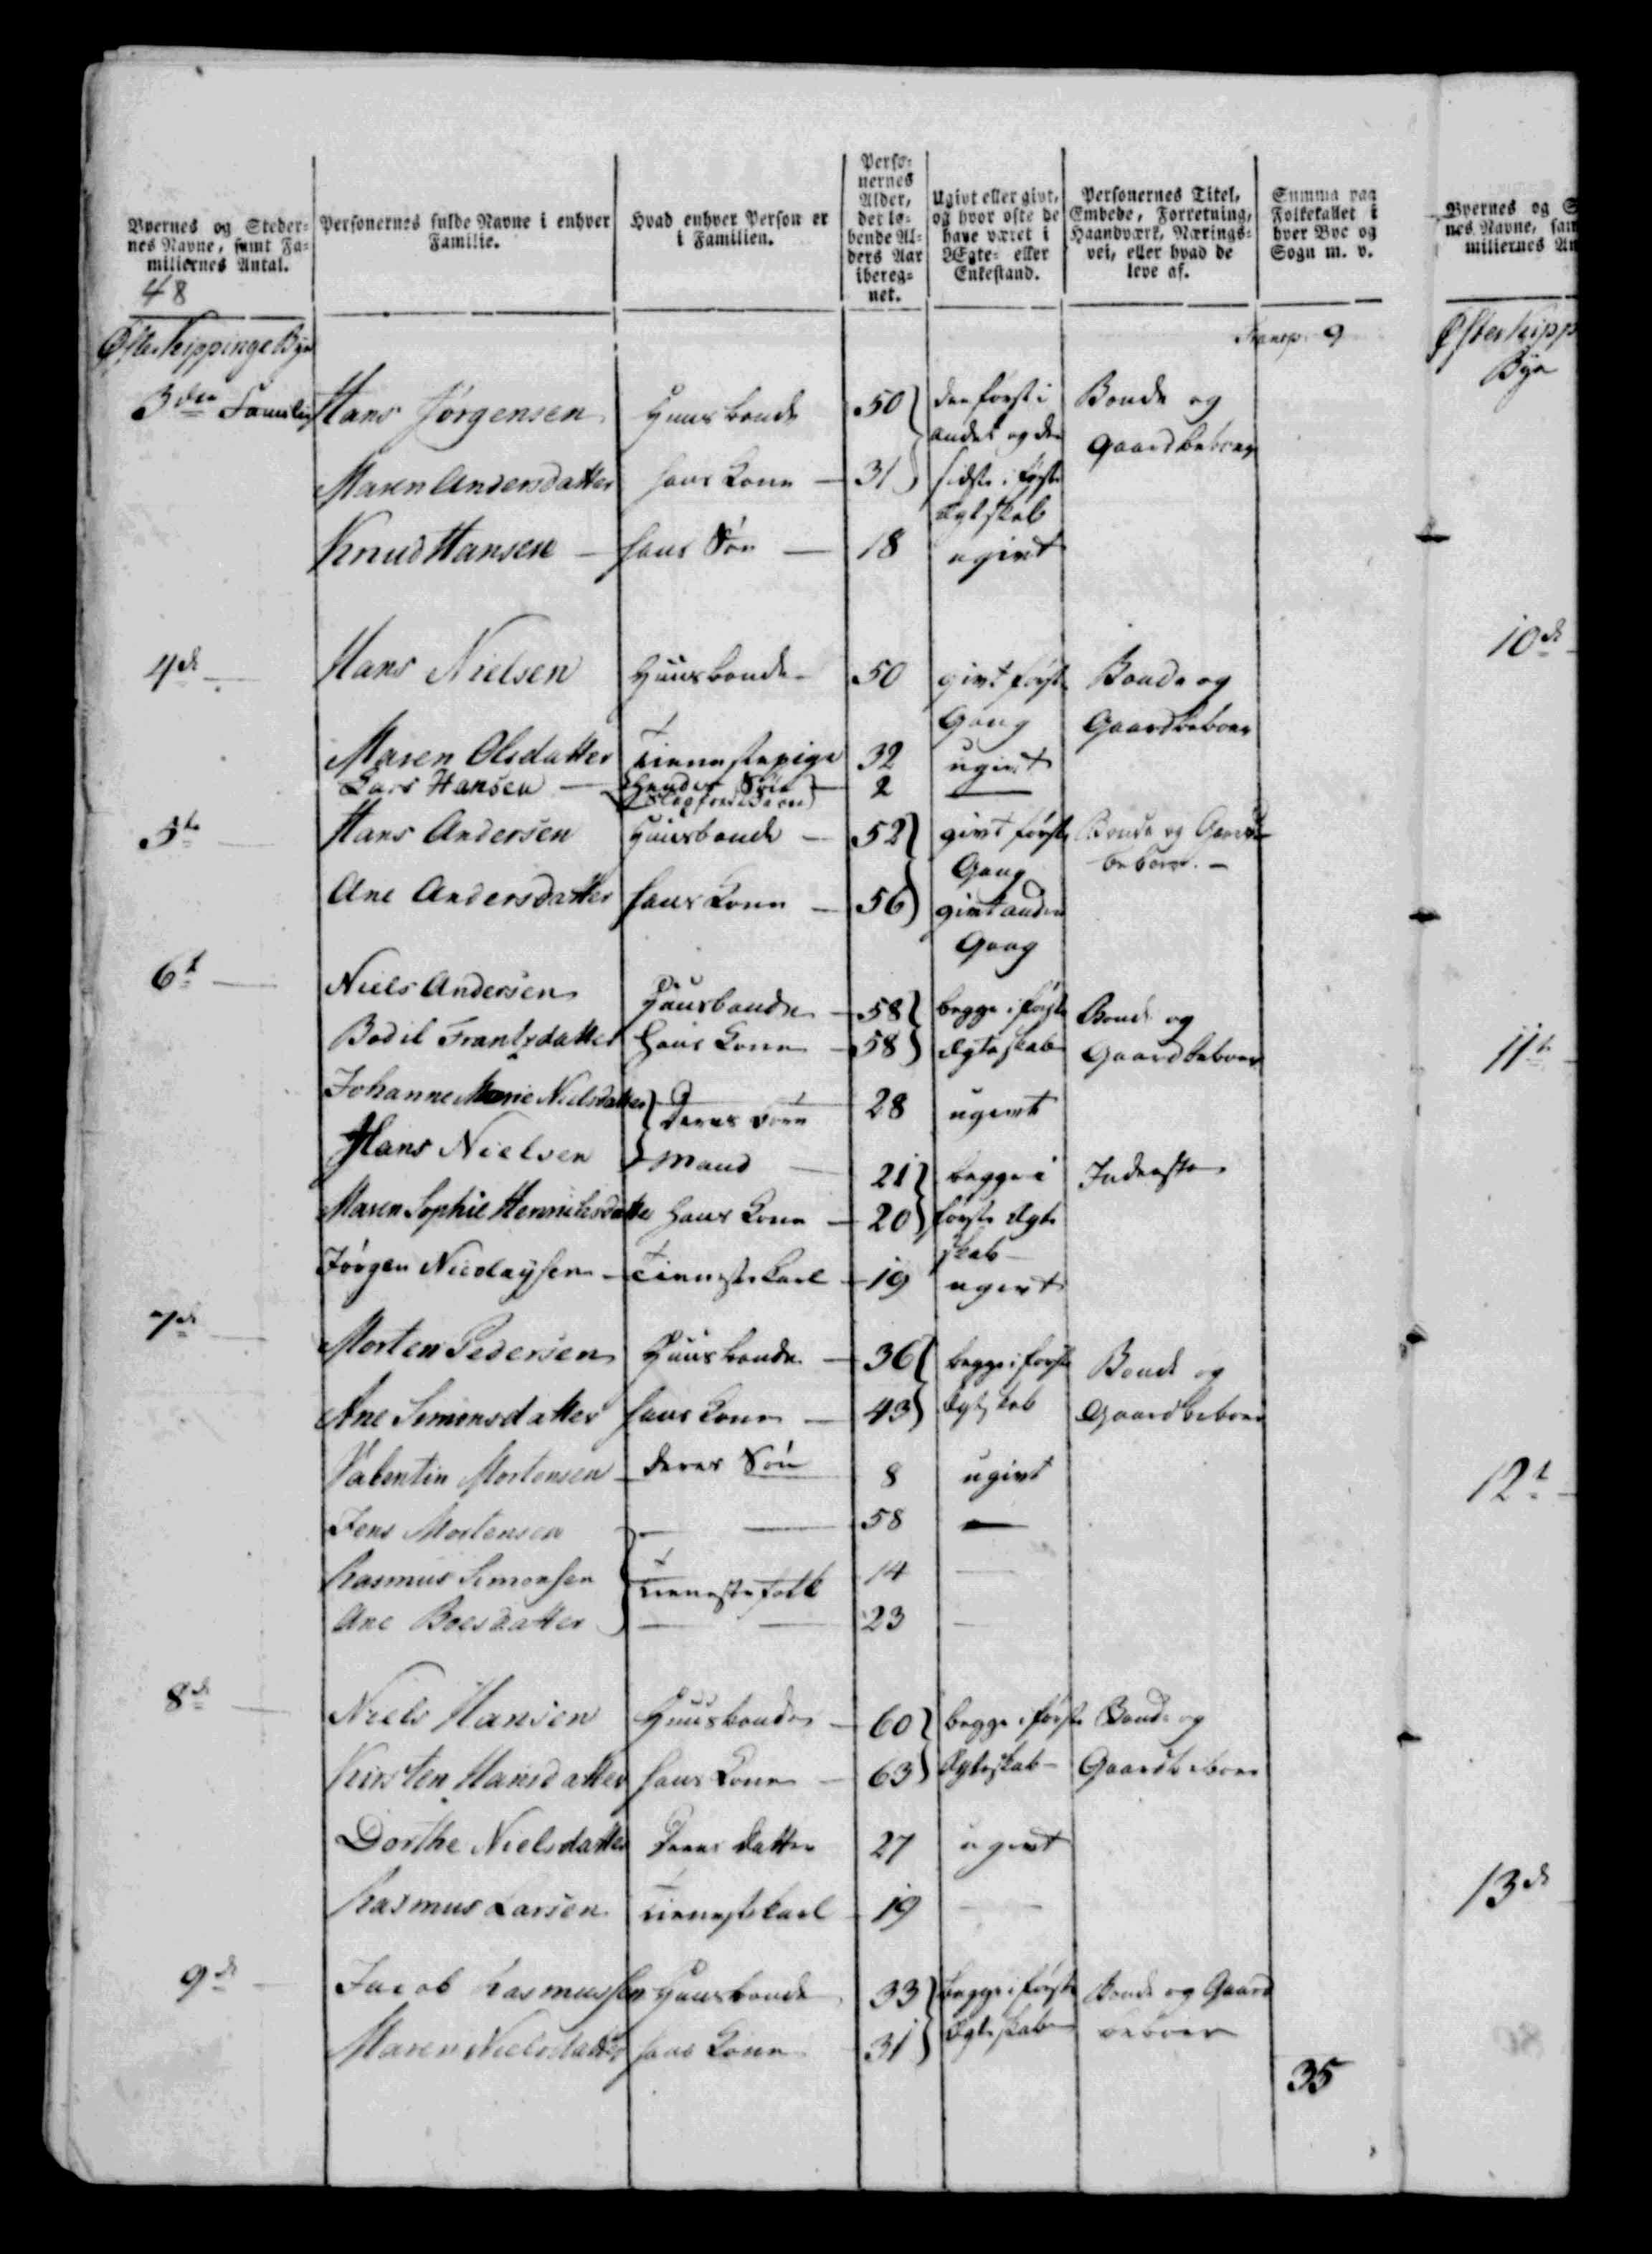 Byernes og Steder-
nes Navne, samt Fa-
miliernes Antal.
48
Personernes fulde Navne i enhver
Familie.
Hvad enhver Person er
i Familien.
Perso-
nernes
Alder,
det lø-
bende Al-
ders Aar
ibereg-
net.
Ugivt eller givt,
og hvor ofte de
have været i
Ægte- eller
Enkestand.
Personernes Titel,
Embede, Forretning,
Haandværk, Nærings-
vei, eller hvad de
leve af.
Summa paa
Folketallet i
hver Bye og
Sogn m. v.
Øster Kippinge Bye
Transp. 9
3die Familie Hans Jørgensen Huusbonde 50 den første i Bonde og
andet og den Gaardbeboer
Maren Andersdatter hans Kone 31 sidste i første
Ægteskab
Knud Hansen hans Søn 18 ugivt
4de Hans Nielsen Huusbonde 50 givt første Bonde og
Gang Gaardbeboer
Maren Olsdatter Tienestepige 32 ugivt
Lars Hansen Hendes Søn 2 —
(Slegfredbarn)
5te Hans Andersen Huusbonde 52 givt første Bonde og Gaard-
Gang beboer.
Ane Andersdatter hans Kone 56 givt anden
Gang
6te Niels Andersen Huusbonde 58 begge i første Bonde og
Bodil Frantzdatter Hans Kone 58 Ægteskab Gaardbeboer
Johanne Marie Nielsdatter 28 ugivt
Deres Børn
Hans Nielsen Mand 21 begge i Inderste
Maren Sophie Henrichsdatter hans Kone 20 første Ægte
skab
Jørgen Nicolaysen Tienestekarl 19 ugivt
7de Morten Pedersen Huusbonde 36 begge i første Bonde og
Ane Simonsdatter hans Kone 43 Ægteskab Gaardbeboer
Valentin Mortensen deres Søn 8 ugivt
Jens Mortensen — 58 —
Rasmus Simonsen Tienestefolk 14 —
Ane Boesdatter — 23 —
8de Niels Hansen Huusbonde 60 begge i første Bonde og
Kirsten Hansdatter hans Kone 63 Ægteskab Gaardbeboer
Dorthe Nielsdatter Deres Datter 27 ugivt
Rasmus Larsen Tienestekarl 19 —
9de Jacob Rasmussen Huusbonde 33 begge i første Bonde og Gaard
Maren Nielsdatter hans Kone 31 Ægteskab beboer
35
Byernes og S
nes Navne, sam
miliernes An
Øster Kipp
Bye
10de
11te
12te
13de